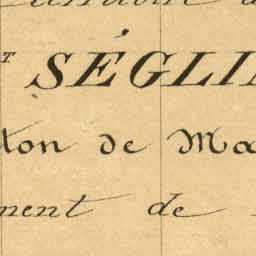 T SÉGLI
ton de Ma
ment de